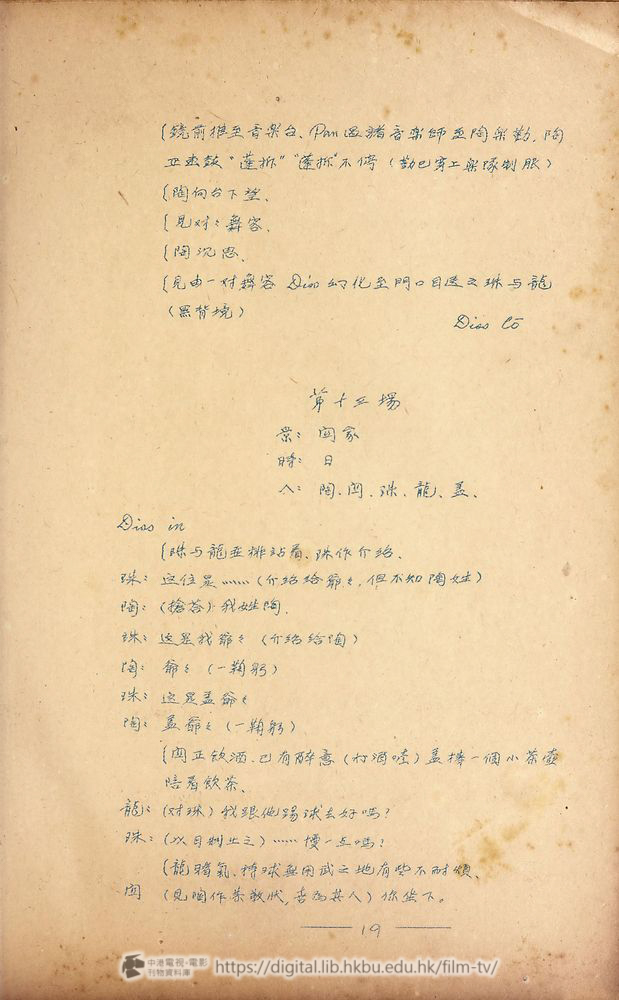 {鏡前推至音樂台、Pan過諸音樂師至陶樂勤,陶
正在鼓“蓬拆”“蓬拆”不停(勤已穿上樂隊制服)
{陶向台下望、
{見对々舞客、
{陶沉思、
{見由一对舞客 Diss 幻化至門口目送之珠与龍
(黑背境)
Diss to
第十三場
景: 閻家
時: 日
人: 陶、閻、珠、龍、孟、
Diss in
{珠与龍並排站着、珠作介紹、
珠: 这位是……(介紹給爺々,但不知陶姓)
陶: (搶荅)我姓陶、
珠: 这是我爺々(介紹給陶)
陶: 爺々(一鞠躬)
珠: 这是孟爺々
陶: 孟爺々(一鞠躬)
{閻正飲酒、已有醉意(打酒噎)孟捧一個小茶壺
陪着飲茶、
龍: (对珠)我跟他踢球去好嗎?
珠: (以目制止之)……慢一点嗎?
{龍賭氣、捧球無用武之地有些不耐煩、
閻 (見陶作恭敬狀,喜為其人)你坐下。
19
中港電視·電影
刊物資料庫
https://digital.lib.hkbu.edu.hk/film-tv/